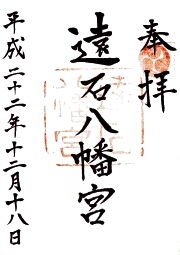 奉拝
遠石八幡宮
平成二十二年十二月十八日